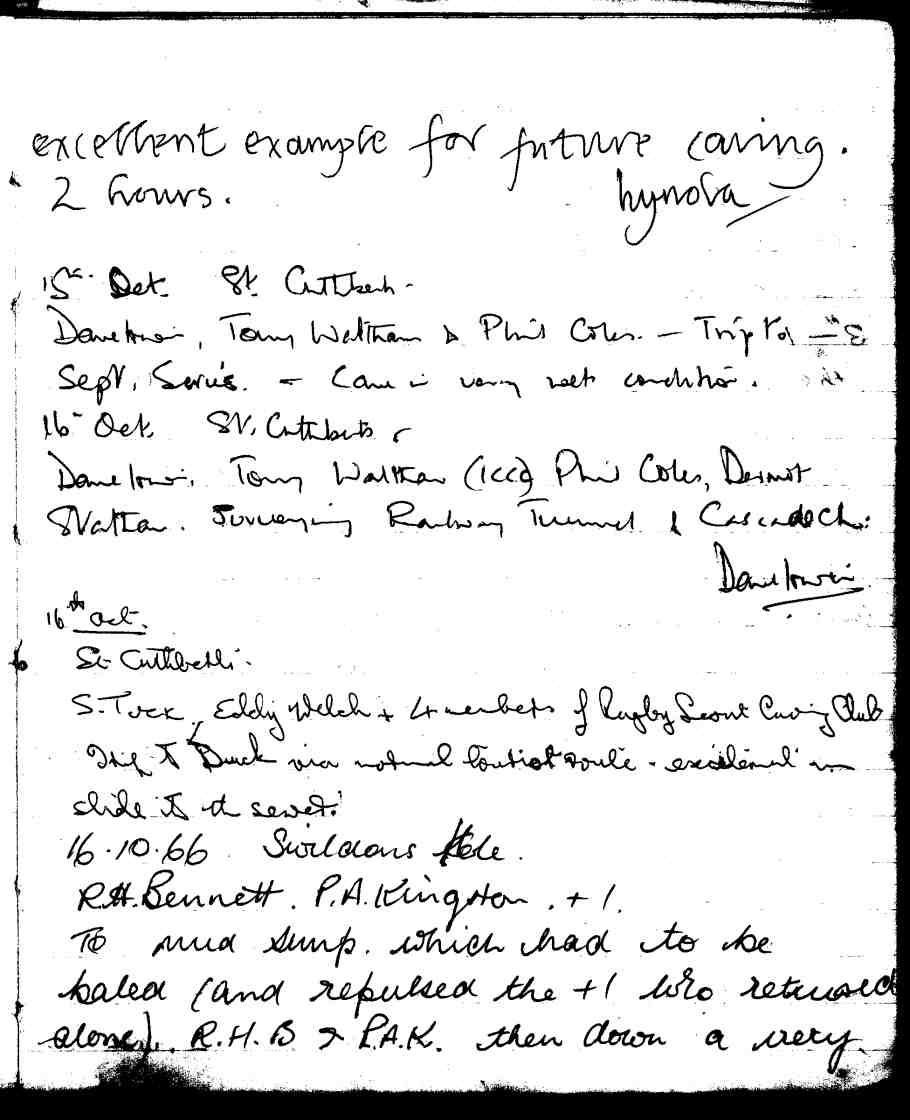 excellent example for future caving.
2 hours.
15th Oct. St. Cuthberts.
Dave Irwin, Tony Waltham & Phil Coles. - Trip to
Sept. Series. - Cave in very wet condition.
16th Oct. St. Cuthberts
Dave Irwin, Tony Waltham (ICCC) Phil Coles, Dermot
Statham. Surveying Railway Tunnel & Cascade Ch:
Dave Irwin
16th Oct.
St Cuthberts.
S. Tuck, Eddy Welch + 4 members of Rugby Scout Caving Club
Trip to Duck via normal tourist route - excellent
slide in the sewer!
16.10.66 Swildons Hole.
R.H. Bennett. P.A. Kingston. + 1.
To mud sump. which had to be
baled (and repulsed the +1 who returned
alone). R.H.B & P.A.K. then down a very